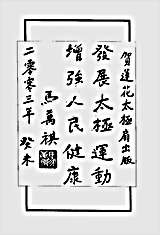 賀蓮花太極扇出版
發展太極運動
增強人民健康
馬萬祺
二零零三年 癸未